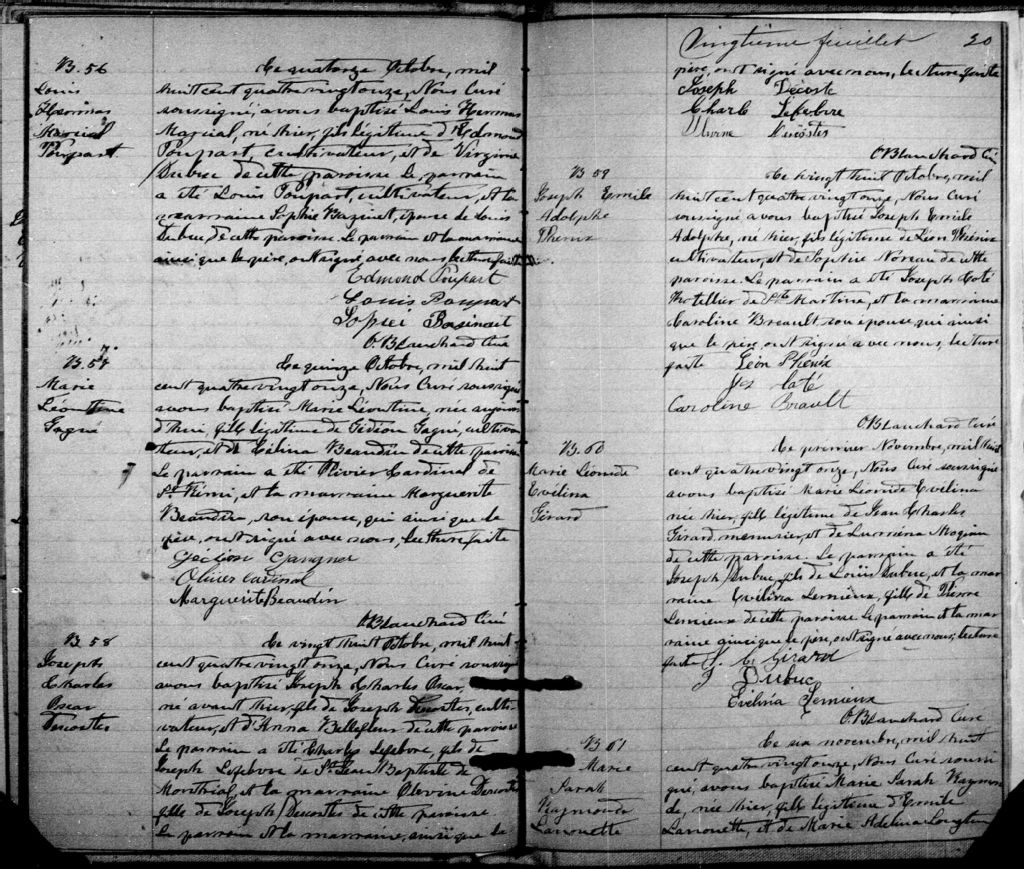 B. 56
Louis
Hermas
Marcial
Poupart
Ce quatorze Octobre, mil
huit cent quatre vingt onze, Nous Curé
soussigné, avons baptisé Louis Hermas
Marcial, né hier, fils légitime d'Edmond
Poupart, cultivateur, et de Virginie
Dubuc de cette paroisse. Le parrain
a été Louis Poupart, cultivateur, et la
marraine Sophie Bazinet, épouse de Louis
Dubuc de cette paroisse. Le parrain et la marraine
ainsi que le père, ont signé avec nous lecture faite
Edmond Poupart
Louis Poupart
Sopei Basinait
O. Blanchard Curé
B. 57
Marie
Léontine
Gagné
Ce quinze Octobre, mil huit
cent quatre vingt onze, Nous Curé soussigné
avons baptisé Marie Léontine, née aujour
d'hui, fille légitime de Gédéon Gagné, cultiva
teur, et de Célina Beaudin de cette paroisse
Le parrain a été Olivier Cardinal de
St Rémi, et la marraine Marguerite
Beaudin, son épouse, qui ainsi que le
père, ont signé avec nous, lecture faite
Gédéon
Olivier Cardinal
Marguerite Beaudin
O. Blanchard Curé
B. 58
Joseph
Charles
Oscar
Descostes
Ce vingt huit Octobre, mil huit
cent quatre vingt onze, Nous Curé soussigné
avons baptisé Joseph Charles Oscar,
né avant hier, fils de Joseph Descostes, culti-
vateur, et d'Anna Bellefleur de cette paroisse
Le parrain a été Charles Lefebvre, fils de
Joseph Lefebvre de St Jean Baptiste de
Montréal et la marraine Olevine Descostes
fille de Joseph Descostes de cette paroisse
Le parrain et la marraine, ainsi que le
Vingtième feuillet 20
père, ont signé avec nous, lecture faite
Joseph Décoste
Charle Lefebvre
Décostes
O. Blanchard Curé
B 59
Joseph Emile
Adolphe
Phenix
Ce vingt huit Octobre, mil
huit cent quatre vingt onze, Nous Curé
soussigné avons baptisé Joseph Emile
Adolphe, né hier, fils légitime de Léon Phénix
cultivateur, et de Sophie Noreau de cette
paroisse. Le parrain a été Joseph Coté
hotellier de Ste Martine, et la marraine
Caroline Breault, son épouse, qui ainsi
que le père, ont signé avec nous, lecture
faite Léon Phenix
Jos Coté
Caroline Brault
O. Blanchard Curé
B. 60
Marie Léonide
Evélina
Girard
Ce premier Novembre, mil huit
cent quatre vingt onze, Nous Curé soussigné
avons baptisé Marie Léonide Evelina
née hier, fille légitime de Jean Charles
Girard, menuisier, et de
de cette paroisse. Le parrain a été
Joseph Dubuc, fils de Louis Dubuc, et la mar
raine Evélina Lemieux, fille de Pierre
Lemieux de cette paroisse. Le parrain et la mar
raine ainsi que le père, ont signé avec nous, lecture
faite J. C. Girard
J Dubuc
Evelina Lemieux
O. Blanchard Curé
B 61
Marie
Sarah
Raymonde
Lanouette
Ce six novembre, mil huit
cent quatre vingt onze, Nous Curé soussi
gné, avons baptisé Marie Sarah Raymon
de, née hier, fille légitime d'Emile
Lanouette, et de Marie Adelina Longtin